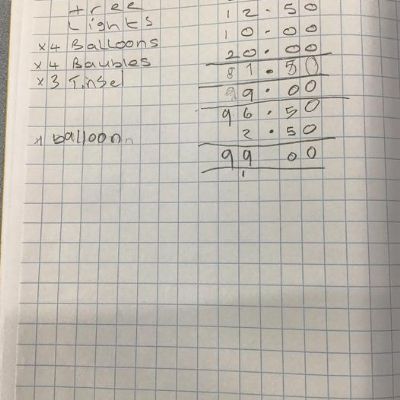 tree 12.50
Lights 10.00
x4 Balloons 20.00
x4 Baubles 81.50
x3 Tinsel 99.00
96.50
x Balloon 2.50
99 00
1